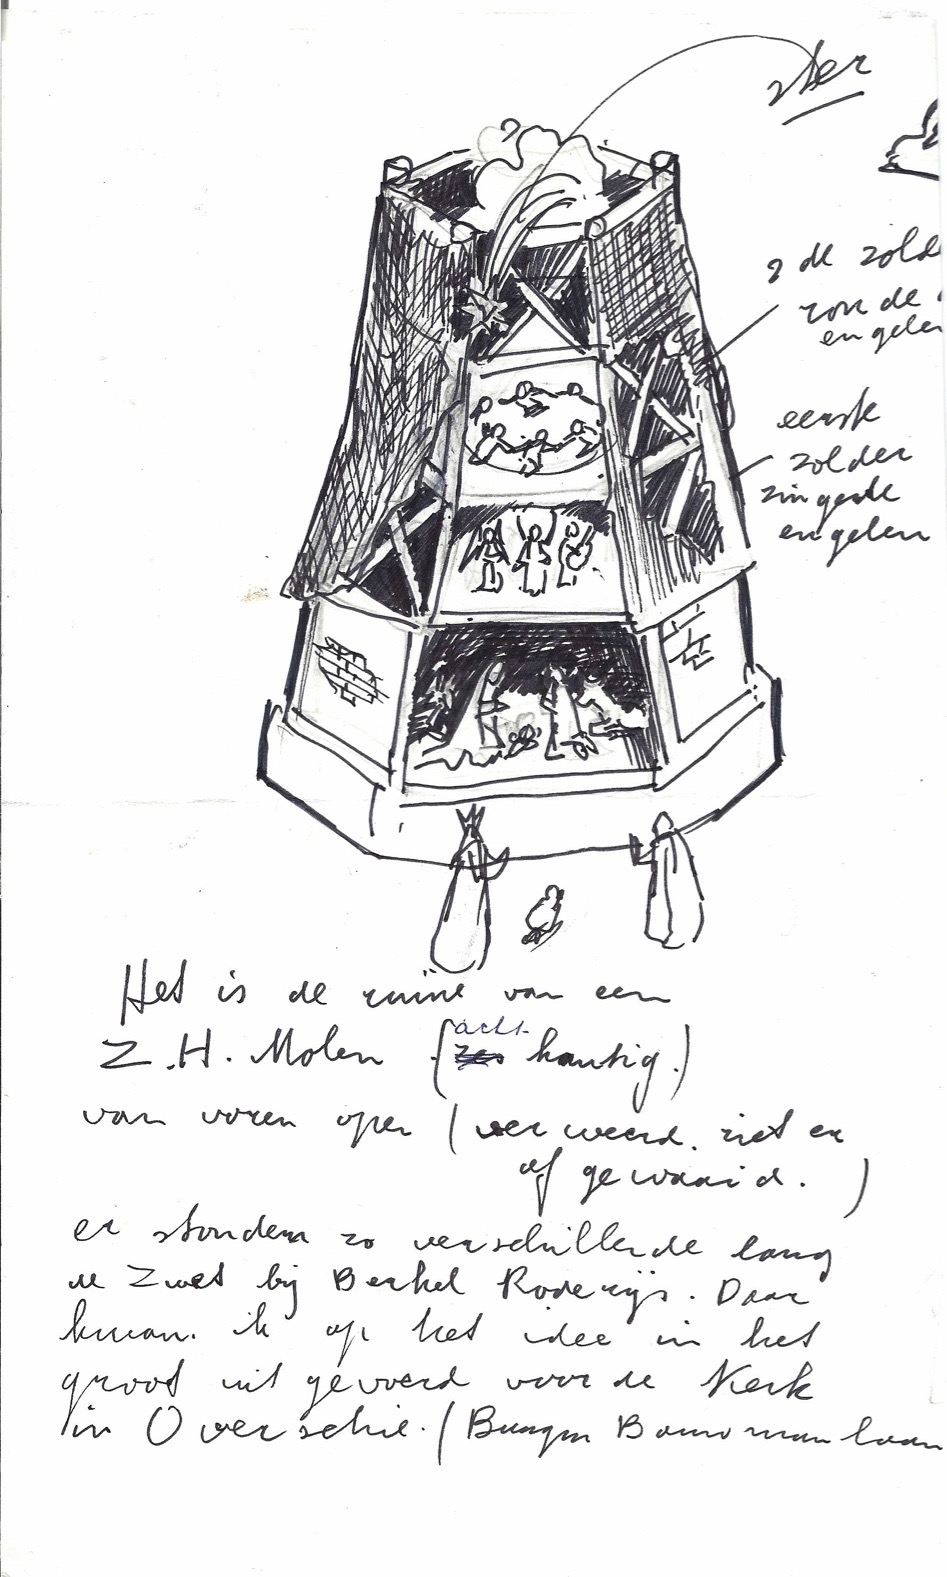 ster
2 de zold
ronde
engelen
eerste
zolder
zingende
engelen
Het is de ruïne van een
Z.H. Molen (acht kantig.)
van voren open (verweerd. riet er
af gewaaid.)
er stonden zo verschillende lang
de Zwet bij Berkel Rodenrijs. Daar
kwam ik op het idee in het
groot uit gevoerd voor de Kerk
in Overschie. (Burgm Bouwmanlaan